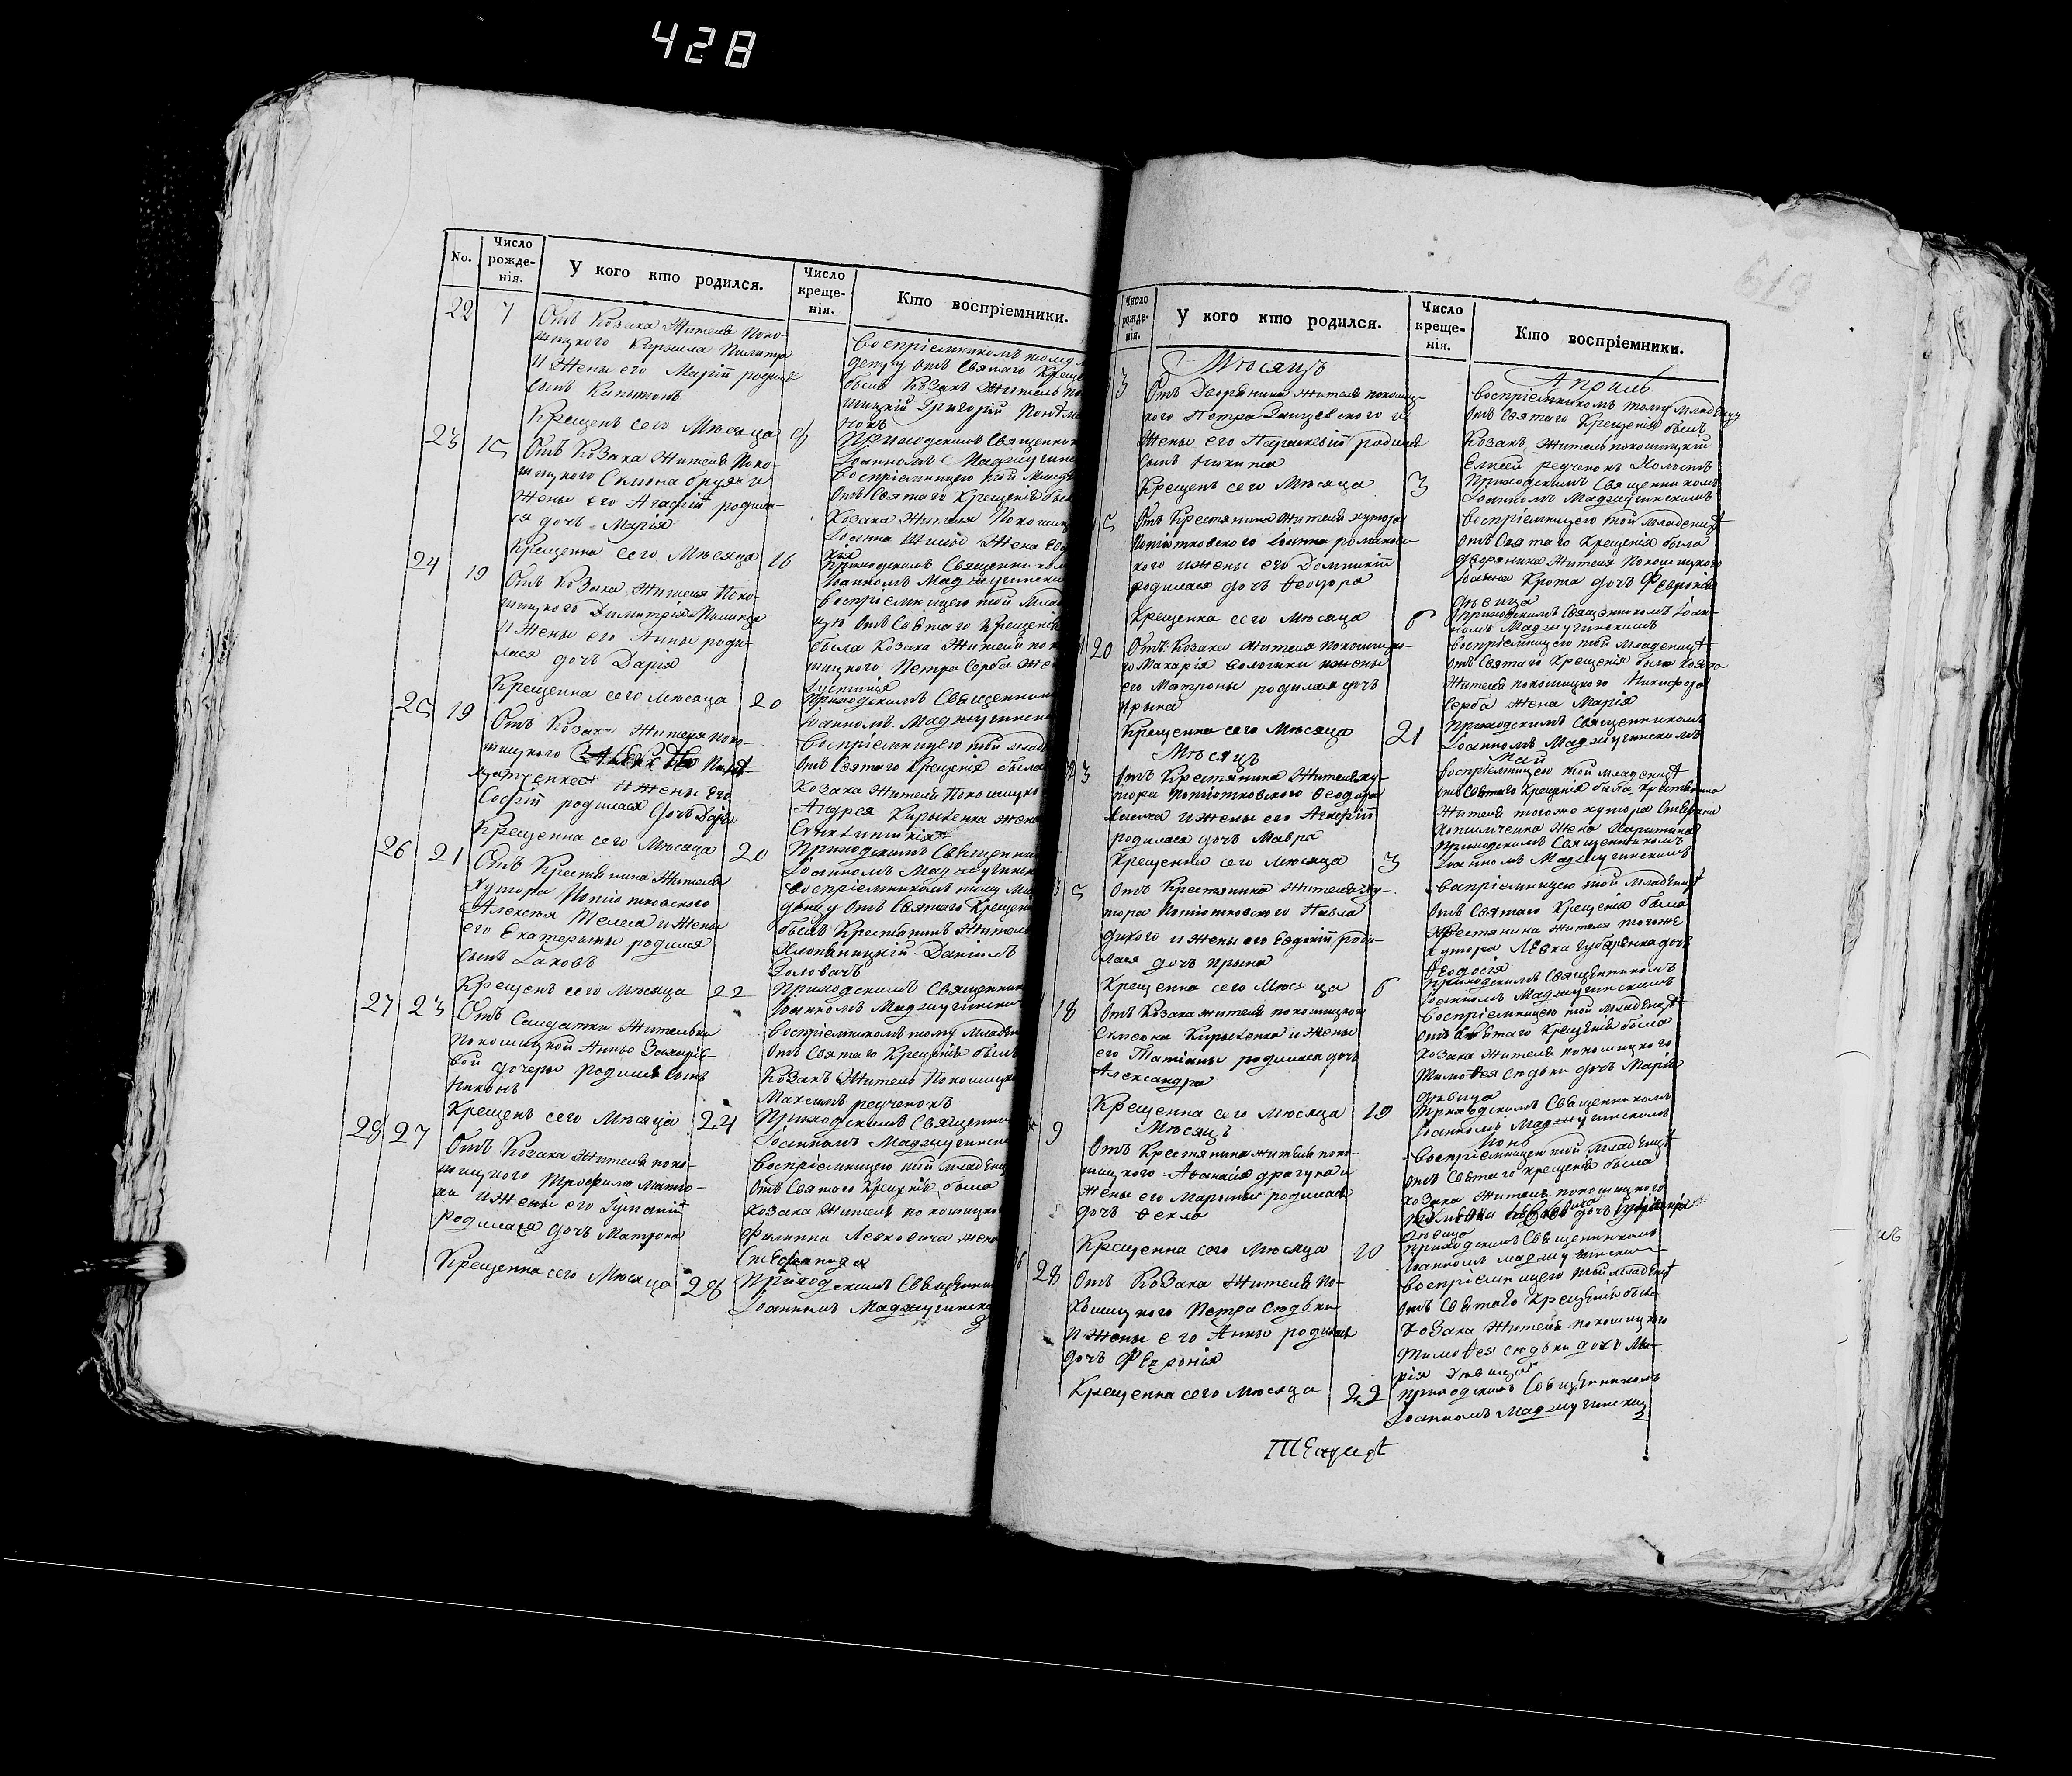 428
No.
Число рожде-нія.
У кого кто родился.
Число креще-нія.
Кто воспріемники.
22 7 Отъ Козака Жителя Поко-
шицкого Кирилла
И Жены его Маріи родился
сынъ Капитонъ
Крещенъ сего Мѣсяца
воспріемникомъ тому
денцу отъ Святаго Креще
былъ Козакъ Житель По
шицкій Григорій
Приходскимъ Священник
Іоанномъ Маджугинс
23 15 Отъ Козака Жителя Поко-
шицкого и
Жены его Агафіи родила-
ся дочь Марія
Крещенна сего Мѣсяца 16
Воспріемницею той Младе
Отъ Святаго Крещенія был
Козака Жителя Покошиц
Іоанна Жена
Приходскимъ Священнико
Іоанномъ Маджугински
24 19 Отъ Козака Жителя Поко-
шицкого Димитрія
И Жены его Анны роди-
лася дочь Дарія
Крещенна сего Мѣсяца 20
воспріемницею той Млад
цѣ отъ Святаго Крещенія
была Козака Жителя пок
шицкого Петра Серба Жен
Іустинія
Приходскимъ Священником
Іоанномъ Маджугински
25 19 Отъ Козака Жителя поко-
шицкого
И Жены его
Софіи родилася дочь Дарія
Крещенна сего Мѣсяца 20
Воспріемницею той млад
отъ Святаго Крещенія была
Козака Жителя Покошицко
Андрея Кирыенка Жена
Приходскимъ Священни
Іоанномъ Маджугинск
26 21 Отъ Крестянина Жителя
Хутора Потютковского
Алексѣя и Жены
его Екатерыны родился
сынъ Іаковъ
Крещенъ сего Мѣсяца 22
воспріемникомъ тому Мла
денцу отъ Святаго Крещені
былъ Крестянинъ Житель
Даніилъ
Головачъ
Приходскимъ Священник
Іоанномъ Маджугински
27 23 Отъ Салдатки Жительки
Покошицкой Анны Захаріе-
вой дочеры родился сынъ
Никонъ
Крещенъ сего Мѣсяца 24
воспріемникомъ тому Младен
отъ Святаго Крещенія былъ
Козакъ Житель Покошицк
Максимъ редченокъ
Приходскимъ Священник
Іоанномъ Маджугински
28 27 Отъ Козака Жителя поко-
шицкого Трофима
и Жены его
родилася дочь Матрона
Крещенна сего Мѣсяца 28
Воспріемницею той младенц
отъ Святаго Крещенія была
Козака Жителя покошицко
Филиппа Левковича Жена
Стефанида
Приходскимъ Священни
Іоанномъ Маджугинск
Число рожде-нія.
У кого кто родился.
Число креще-нія.
Кто воспріемники.
Мѣсяцъ Апрѣль
3 Отъ Дворянина Жителя покошиц-
кого Петра и
Жены его Параскевіи родился
сынъ Никита
Крещенъ сего Мѣсяца 3
воспріемникомъ тому Младенцу
отъ Святаго Крещенія былъ
Козакъ Житель покошицкій
Елисей редченокъ
Приходскимъ Священникомъ
Іоанномъ Маджугинскимъ
5 Отъ Крестянина Жителя хутора
Потютковского Іоанна
кого и жены его Домникіи
родилася дочь Ѳеодора
Крещенна сего Мѣсяца 6
воспріемницею той младенцѣ
отъ Святаго Крещенія была
дворянина Жителя Покошицкого
Іоанна Крота дочь Февронія
дѣвица
Приходскимъ Священникомъ Іоан-
номъ Маджугинскимъ
20 Отъ Козака Жителя покошицко-
го Макарія и жены
его Матроны родилася дочь
Ирына
Крещенна сего Мѣсяца 21
воспріемницею той младенцѣ
отъ Святаго Крещенія была козака
Жителя покошицкого Никифора
Серба Жена Марія
Приходскимъ Священникомъ
Іоанномъ Маджугинскимъ
Мѣсяцъ Май
3 отъ Крестянина Жителя ху-
тора Потютковского Ѳеодора
и Жены его Агафіи
родилася дочь Мавра
Крещенна сего Мѣсяца 3
воспріемницею той младенцѣ
отъ Святаго Крещенія была Крестянина
Жителя того же хутора Стефана
Жена Харитина
Приходскимъ Священникомъ
Іоанномъ Маджугинскимъ
5 Отъ Крестянина Жителя ху-
тора Потютковского Павла
дикого и Жены его Евдокіи роди-
лася дочь Ирына
Крещенна сего Мѣсяца 6
воспріемницею той младенцѣ
отъ Святаго Крещенія была
Крестянина Жителя того же
хутора Левка дочь
Ѳеодосія
Приходскимъ Священникомъ
Іоанномъ Маджугинскимъ
18 Отъ Козака жителя покошицкого
Симеона Кирыенка и Жены
его Татіаны родилася дочь
Александра
Крещенна сего Мѣсяца 19
воспріемницею той младенцѣ
отъ Святаго Крещенія была
козака Жителя покошицкого
Тимоѳея Сюдьки дочь Марія
дѣвица
Приходскимъ Священникомъ
Іоанномъ Маджугинскимъ
Мѣсяцъ Іюнь
9 Отъ Крестянина жителя поко-
шицкого Аѳанасія драгуна и
Жены его Марыны родилася
дочь Ѳекла
Крещенна сего Мѣсяца 10
воспріемницею той младенцѣ
отъ Святаго Крещенія была
козака Жителя покошицкого
дочь
дѣвица
Приходскимъ Священникомъ
Іоанномъ Маджугинским
28 Отъ Козака Жителя По-
кошицкого Петра Сюдьки
и Жены его Анны родилась
дочь Февронія
Крещенна сего Мѣсяца 29
воспріемницею той младенцѣ
отъ Святаго Крещенія была
козака Жителя покошицкого
Тимоѳея Сюдьки дочь Ма-
рія дѣвица
Приходскимъ Священникомъ
Іоанномъ Маджугинским